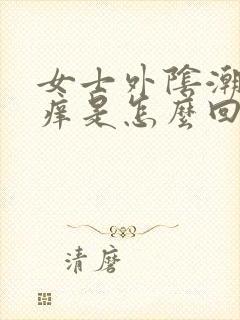 女士外陰潮
痒是怎麼回
清磨